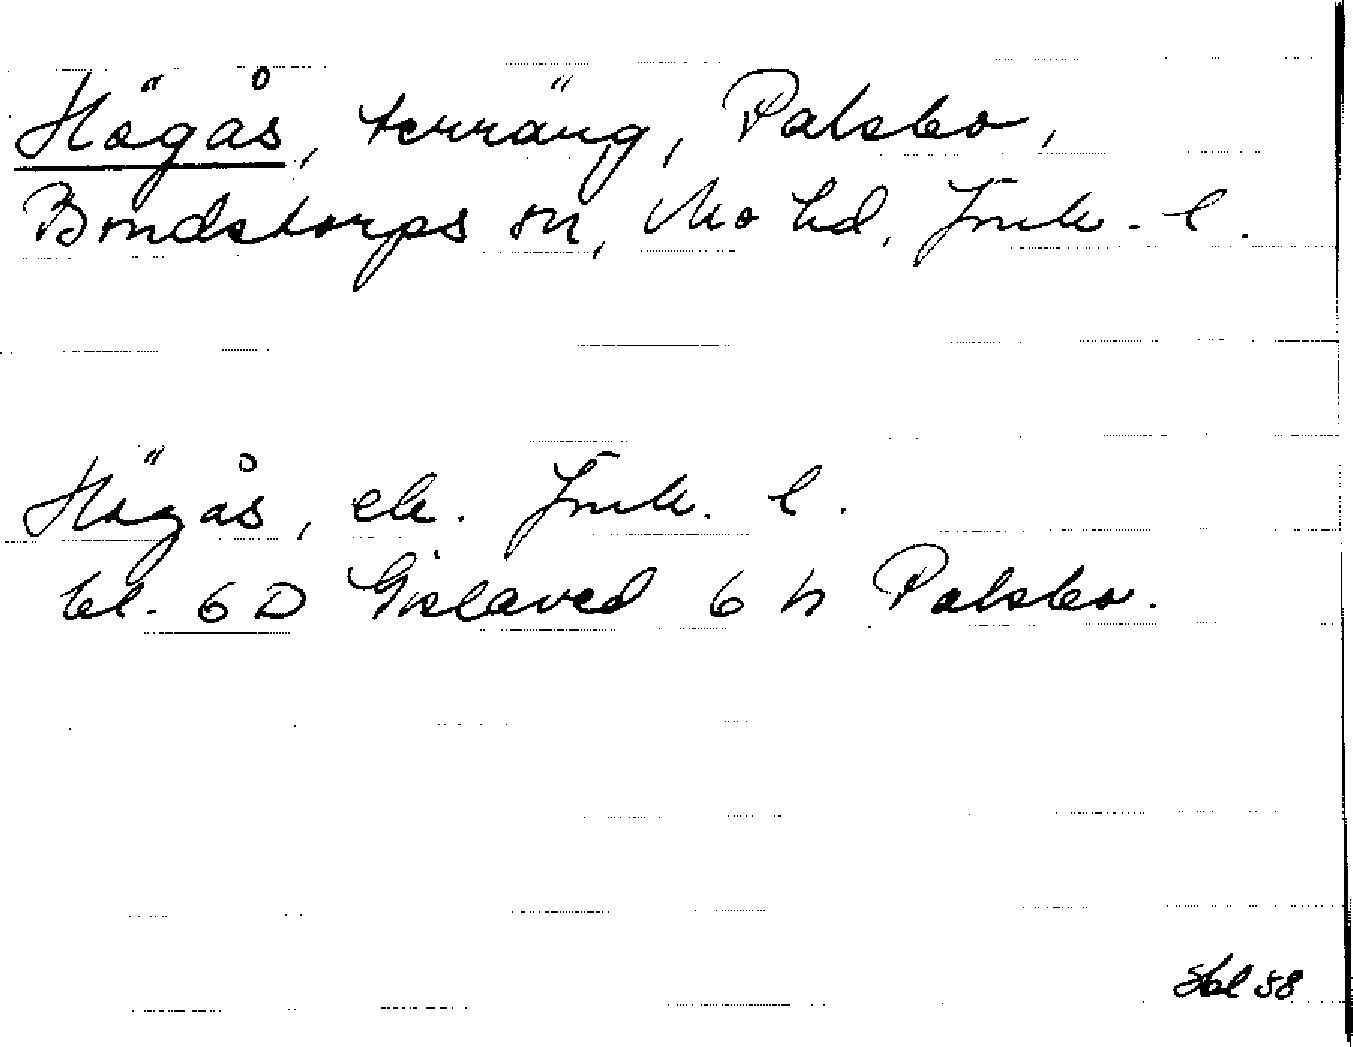 Högås, terräng, Palsbo,
Bondstorps sn, Mo hd, Jmk. l.
Högås, ek. Jmk. l.
bl. 6D Gislaved 6 h Palsbo.
Hbl 58